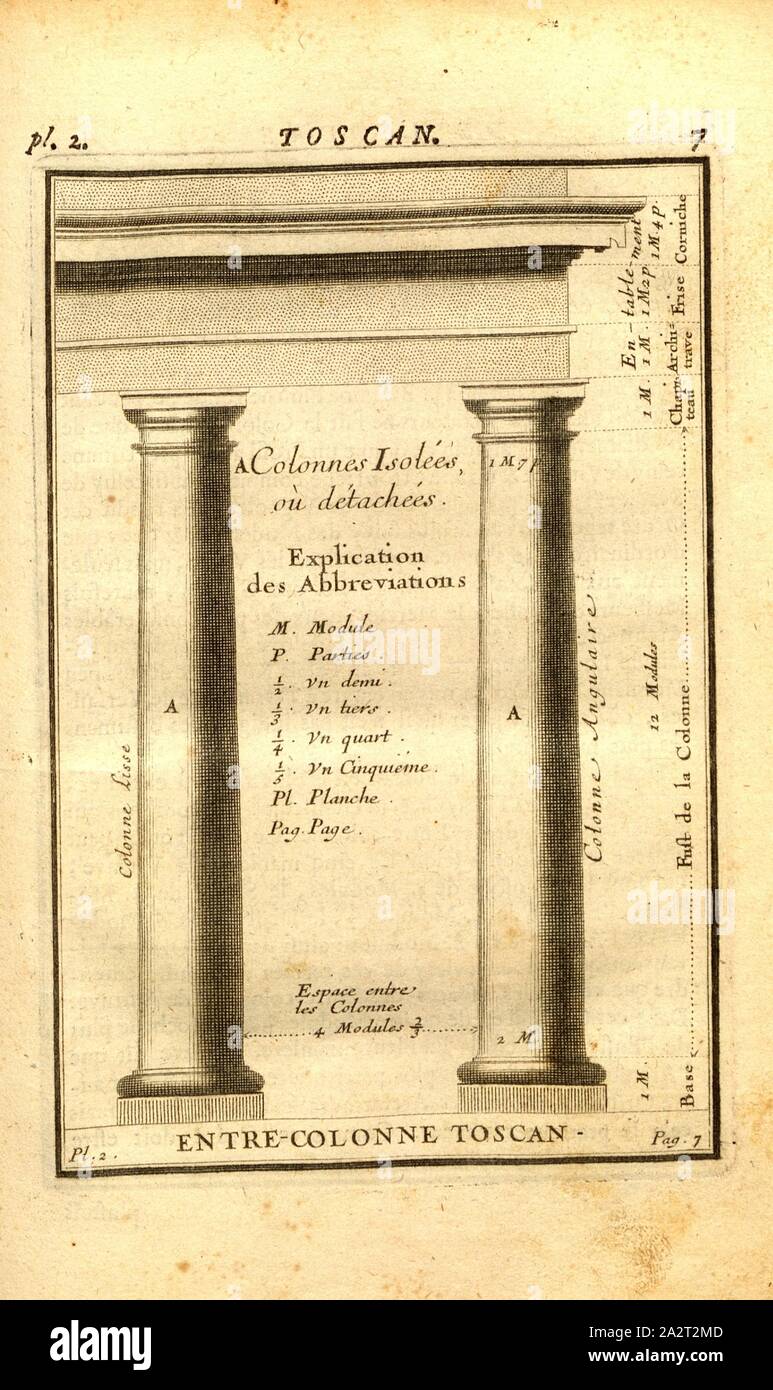 pl. 2. TOSCAN. 7
En-tablement
1 M 4 p. Corniche
1 M 2 p Frise
1 M. Archi=
trave
1 M. Chapi
teau
A Colonnes Isolées,
où détachées.
1 M 7 p
Explication
des Abbreviations
M. Module
P. Parties.
1/2. Vn demi.
1/3. Vn tiers.
1/4. Vn quart.
1/5. Vn Cinquiéme.
Pl. Planche.
Pag. Page.
A
A
Colonne Lisse
Colonne Angulaire
12 Modules
Fust de la Colonne
Espace entre
les Colonnes
4 Modules 2/3
2 M
1 M.
Base
ENTRE-COLONNE TOSCAN-
Pl. 2. Pag. 7
alamy
Image ID: 2A2T2MD
www.alamy.com